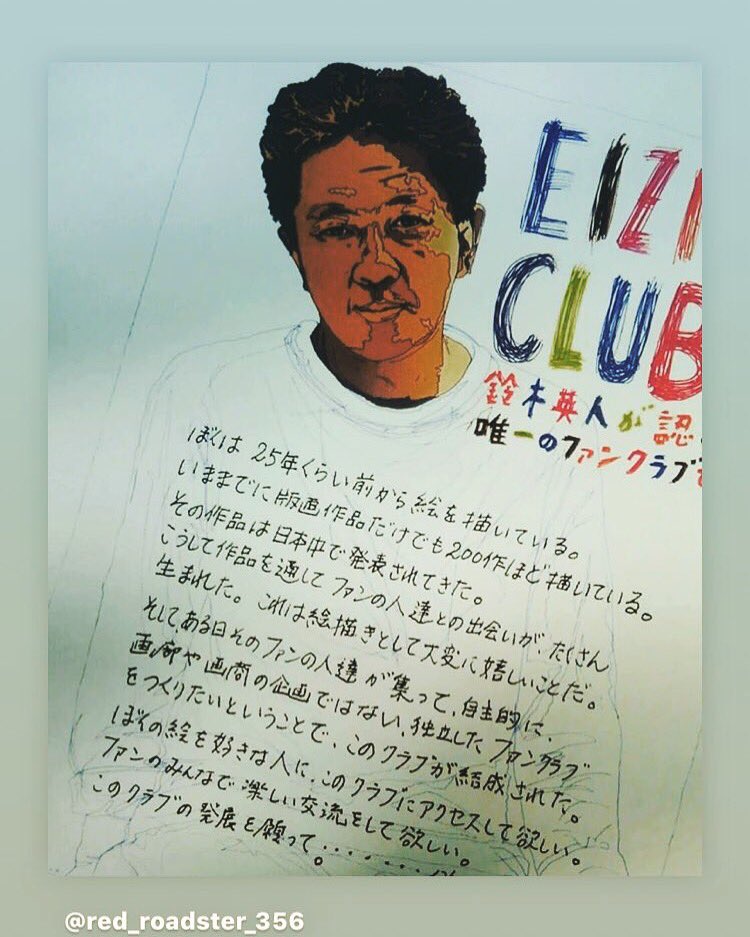 EIZI
CLUB
鈴木英人が認
唯一のファンクラブ
ぼくは25年くらい前から絵を描いている。
いままでに版画作品だけでも200作ほど描いている。
その作品は日本中で発表されてきた。
こうして作品を通してファンの人達との出会いが、たくさん
生まれた。これは絵描きとして大変に嬉しいことだ。
そしてある日そのファンの人達が集って、自主的に、
画廊や画商の企画ではない、独立したファンクラブ
をつくりたいということで、このクラブが結成された。
ぼくの絵を好きな人に、このクラブにアクセスして欲しい。
ファンのみんなで楽しい交流をして欲しい。
このクラブの発展を願って。・・・・・・・
@red_roadster_356